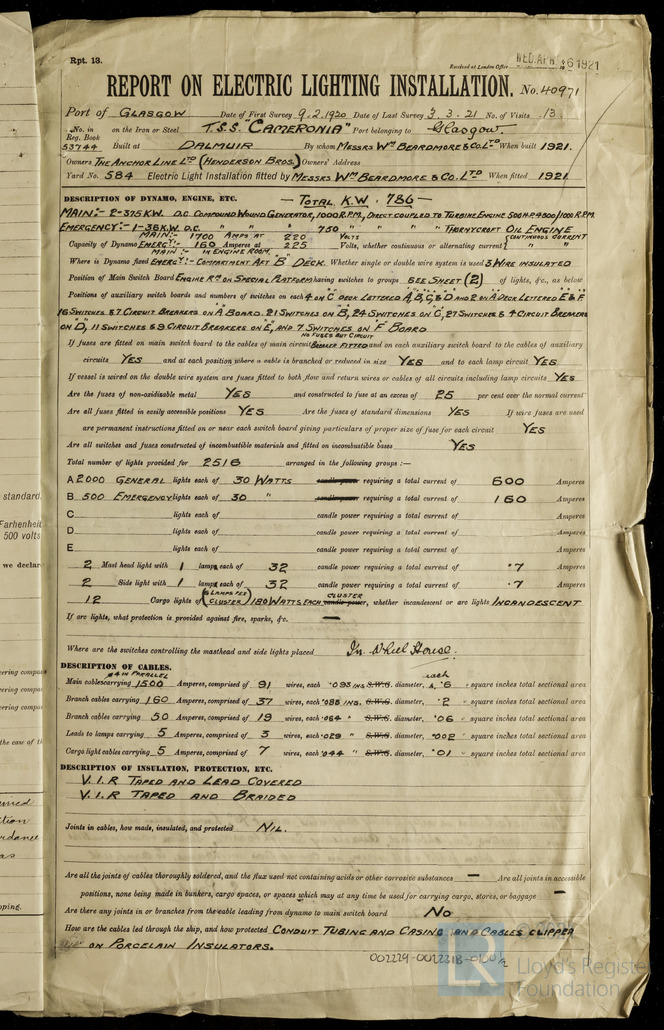 Rpt. 13.
Received at London Office WED. APR. 6 1921
REPORT ON ELECTRIC LIGHTING INSTALLATION. No. 40971
Port of GLASGOW Date of First Survey 9.2.1920 Date of Last Survey 3.3.21 No. of Visits 13
No. in Reg. Book 53744 on the Iron or Steel T.S.S. "CAMERONIA" Port belonging to Glasgow.
Built at DALMUIR By whom MESSRS WM BEARDMORE & CO. LTD When built 1921.
Owners THE ANCHOR LINE LTD (HENDERSON BROS.) Owners' Address
Yard No. 584 Electric Light Installation fitted by MESSRS WM BEARDMORE & CO. LTD When fitted 1921.
DESCRIPTION OF DYNAMO, ENGINE, ETC. — TOTAL K.W. 786 —
MAIN:- 2-375 KW. D.C. COMPOUND WOUND GENERATOR, 1000 R.P.M., DIRECT COUPLED TO TURBINE ENGINE 500 H.P. 4500/1000 R.P.M.
EMERGENCY:- 1-36 K.W. D.C. " " " 750 " " " THORNYCROFT OIL ENGINE
MAIN:- 1700 AMPS AT 220 VOLTS CONTINUOUS CURRENT
Capacity of Dynamo EMERGY:- 160 Amperes at 225 Volts, whether continuous or alternating current " "
MAIN:- IN ENGINE ROOM.
Where is Dynamo fixed EMERGY:- COMPARTMENT AFT "B" DECK. Whether single or double wire system is used 3 WIRE INSULATED
Position of Main Switch Board ENGINE RM ON SPECIAL PLATFORM having switches to groups SEE SHEET (2) of lights, &c., as below
Positions of auxiliary switch boards and numbers of switches on each 4 ON C DECK LETTERED A, B, C, & D AND 2 ON A DECK LETTERED E & F
16 SWITCHES & 7 CIRCUIT BREAKERS ON A BOARD. 21 SWITCHES ON B, 24 SWITCHES ON C, 27 SWITCHES & 4 CIRCUIT BREAKERS
ON D, 11 SWITCHES & 9 CIRCUIT BREAKERS ON E, AND 7 SWITCHES ON F BOARD
NO FUSES BUT CIRCUIT
If fuses are fitted on main switch board to the cables of main circuit BREAKER FITTED and on each auxiliary switch board to the cables of auxiliary
circuits YES and at each position where a cable is branched or reduced in size YES and to each lamp circuit YES
If vessel is wired on the double wire system are fuses fitted to both flow and return wires or cables of all circuits including lamp circuits YES
Are the fuses of non-oxidisable metal YES and constructed to fuse at an excess of 25 per cent over the normal current
Are all fuses fitted in easily accessible positions YES Are the fuses of standard dimensions YES If wire fuses are used
are permanent instructions fitted on or near each switch board giving particulars of proper size of fuse for each circuit YES
Are all switches and fuses constructed of incombustible materials and fitted on incombustible bases YES
Total number of lights provided for 2516 arranged in the following groups :—
A 2000 GENERAL lights each of 30 WATTS candle power requiring a total current of 600 Amperes
B 500 EMERGENCY lights each of 30 " candle power requiring a total current of 160 Amperes
C lights each of candle power requiring a total current of Amperes
D lights each of candle power requiring a total current of Amperes
E lights each of candle power requiring a total current of Amperes
2 Mast head light with 1 lamps each of 32 candle power requiring a total current of ·7 Amperes
2 Side light with 1 lamps each of 32 candle power requiring a total current of ·7 Amperes
12 Cargo lights of (6 LAMPS PER CLUSTER) 180 WATTS EACH CLUSTER candle power, whether incandescent or arc lights INCANDESCENT
If arc lights, what protection is provided against fire, sparks, &c. —
Where are the switches controlling the masthead and side lights placed In Wheel House.
DESCRIPTION OF CABLES.
4 IN PARALLEL each
Main cables carrying 1500 Amperes, comprised of 91 wires, each ·093 INS S.W.G. diameter, ·6 square inches total sectional area
Branch cables carrying 160 Amperes, comprised of 37 wires, each ·083 INS. S.W.G. diameter, ·2 square inches total sectional area
Branch cables carrying 50 Amperes, comprised of 19 wires, each ·064 " S.W.G. diameter, ·06 square inches total sectional area
Leads to lamps carrying 5 Amperes, comprised of 3 wires, each ·029 " S.W.G. diameter, ·002 square inches total sectional area
Cargo light cables carrying 5 Amperes, comprised of 7 wires, each ·044 " S.W.G. diameter, ·01 square inches total sectional area
DESCRIPTION OF INSULATION, PROTECTION, ETC.
V.I.R TAPED AND LEAD COVERED
V.I.R TAPED AND BRAIDED
Joints in cables, how made, insulated, and protected NIL.
Are all the joints of cables thoroughly soldered, and the flux used not containing acids or other corrosive substances — Are all joints in accessible
positions, none being made in bunkers, cargo spaces, or spaces which may at any time be used for carrying cargo, stores, or baggage —
Are there any joints in or branches from the cable leading from dynamo to main switch board No
How are the cables led through the ship, and how protected CONDUIT TUBING AND CASING AND CABLES CLIPPED
ON PORCELAIN INSULATORS.
002229-002231B-0100 1/2
LR Lloyd's Register
Foundation
standard.
Farhenheit
500 volts
we declare